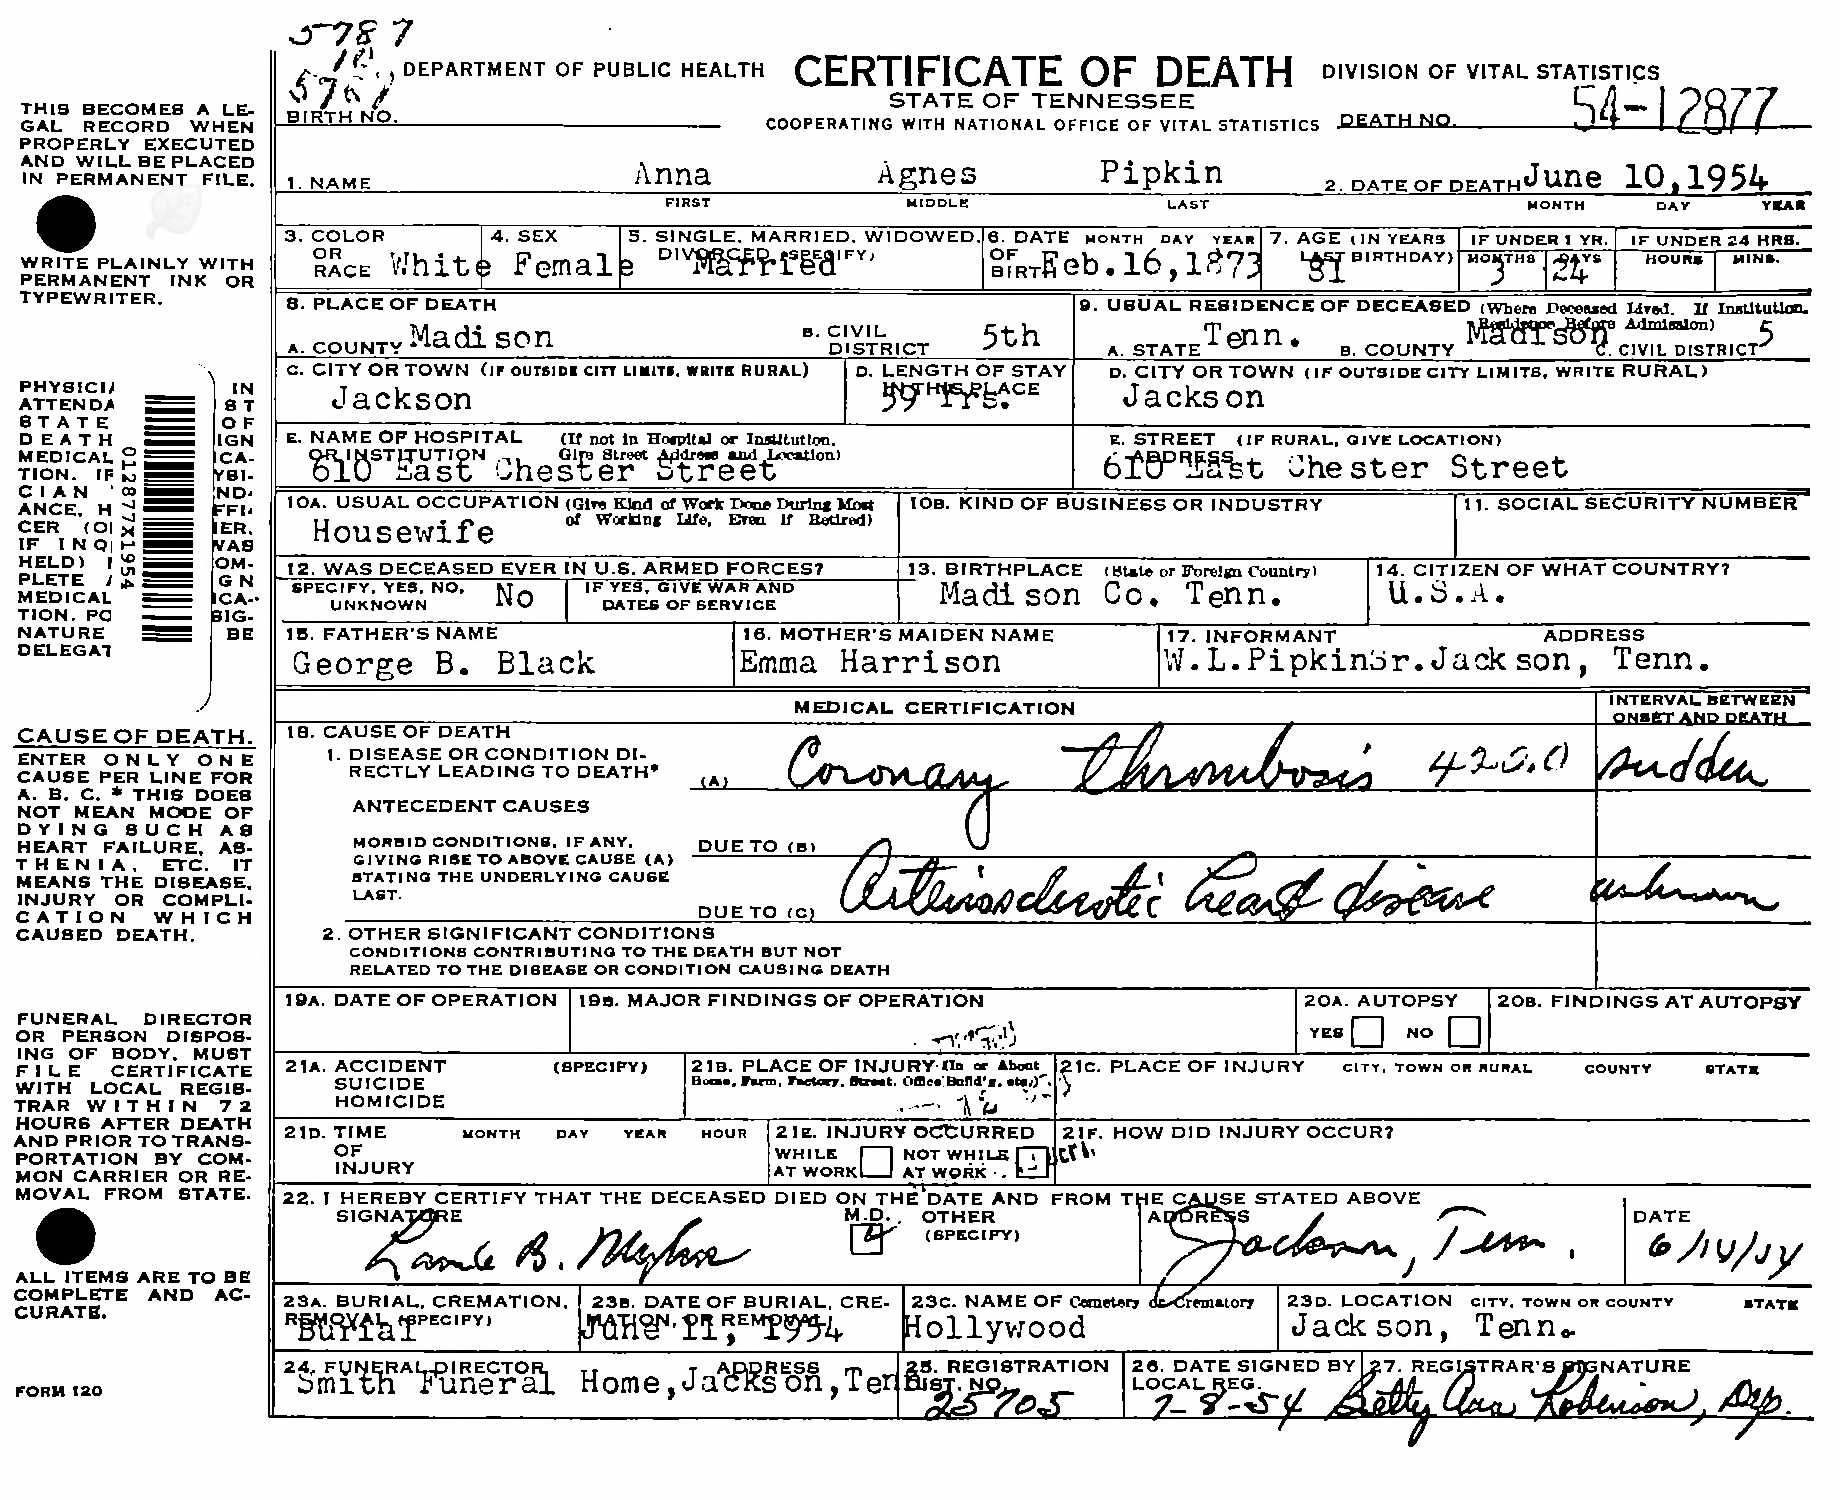 5787
DEPARTMENT OF PUBLIC HEALTH CERTIFICATE OF DEATH DIVISION OF VITAL STATISTICS
STATE OF TENNESSEE
BIRTH NO. COOPERATING WITH NATIONAL OFFICE OF VITAL STATISTICS DEATH NO. 54-12877
1. NAME Anna Agnes Pipkin 2. DATE OF DEATH June 10,1954
FIRST MIDDLE LAST MONTH DAY YEAR
3. COLOR OR RACE White
4. SEX Female
5. SINGLE, MARRIED, WIDOWED, DIVORCED (SPECIFY) Married
6. DATE OF BIRTH MONTH DAY YEAR Feb.16,1873
7. AGE (IN YEARS LAST BIRTHDAY) 81
IF UNDER 1 YR. MONTHS 3 DAYS 24
IF UNDER 24 HRS. HOURS MINS.
8. PLACE OF DEATH
A. COUNTY Madison
B. CIVIL DISTRICT 5th
9. USUAL RESIDENCE OF DECEASED (Where Deceased Lived. If Institution, Residence Before Admission)
A. STATE Tenn. B. COUNTY Madison C. CIVIL DISTRICT 5
C. CITY OR TOWN (IF OUTSIDE CITY LIMITS, WRITE RURAL) Jackson
D. LENGTH OF STAY IN THIS PLACE 59 Yrs.
D. CITY OR TOWN (IF OUTSIDE CITY LIMITS, WRITE RURAL) Jackson
E. NAME OF HOSPITAL OR INSTITUTION (If not in Hospital or Institution, Give Street Address and Location) 610 East Chester Street
E. STREET ADDRESS (IF RURAL, GIVE LOCATION) 610 East Chester Street
10A. USUAL OCCUPATION (Give Kind of Work Done During Most of Working Life, Even If Retired) Housewife
10B. KIND OF BUSINESS OR INDUSTRY
11. SOCIAL SECURITY NUMBER
12. WAS DECEASED EVER IN U.S. ARMED FORCES?
SPECIFY, YES, NO, UNKNOWN No
IF YES, GIVE WAR AND DATES OF SERVICE
13. BIRTHPLACE (State or Foreign Country) Madison Co. Tenn.
14. CITIZEN OF WHAT COUNTRY? U.S.A.
15. FATHER'S NAME George B. Black
16. MOTHER'S MAIDEN NAME Emma Harrison
17. INFORMANT ADDRESS W.L.Pipkin Sr. Jackson, Tenn.
MEDICAL CERTIFICATION
INTERVAL BETWEEN ONSET AND DEATH
18. CAUSE OF DEATH
1. DISEASE OR CONDITION DIRECTLY LEADING TO DEATH* (A) Coronary thrombosis 420.0 sudden
ANTECEDENT CAUSES
MORBID CONDITIONS, IF ANY, GIVING RISE TO ABOVE CAUSE (A) STATING THE UNDERLYING CAUSE LAST.
DUE TO (B)
DUE TO (C) Arteriosclerotic heart disease unknown
2. OTHER SIGNIFICANT CONDITIONS
CONDITIONS CONTRIBUTING TO THE DEATH BUT NOT
RELATED TO THE DISEASE OR CONDITION CAUSING DEATH
19A. DATE OF OPERATION
19B. MAJOR FINDINGS OF OPERATION
20A. AUTOPSY YES NO
20B. FINDINGS AT AUTOPSY
21A. ACCIDENT SUICIDE HOMICIDE (SPECIFY)
21B. PLACE OF INJURY (In or About Home, Farm, Factory, Street, Office Build'g, etc.)
21C. PLACE OF INJURY CITY, TOWN OR RURAL COUNTY STATE
21D. TIME OF INJURY MONTH DAY YEAR HOUR
21E. INJURY OCCURRED WHILE AT WORK NOT WHILE AT WORK
21F. HOW DID INJURY OCCUR?
22. I HEREBY CERTIFY THAT THE DECEASED DIED ON THE DATE AND FROM THE CAUSE STATED ABOVE
SIGNATURE B.
M.D. OTHER (SPECIFY)
ADDRESS Jackson, Tenn.
DATE 6/14/54
23A. BURIAL, CREMATION, REMOVAL (SPECIFY) Burial
23B. DATE OF BURIAL, CREMATION, OR REMOVAL June 11, 1954
23C. NAME OF Cemetery or Crematory Hollywood
23D. LOCATION CITY, TOWN OR COUNTY STATE Jackson, Tenn.
24. FUNERAL DIRECTOR ADDRESS Smith Funeral Home,Jackson,Tenn
25. REGISTRATION DIST. NO. 25705
26. DATE SIGNED BY LOCAL REG. 7-8-54
27. REGISTRAR'S SIGNATURE Betty Ann Roberson, Dep.
THIS BECOMES A LE-
GAL RECORD WHEN
PROPERLY EXECUTED
AND WILL BE PLACED
IN PERMANENT FILE.
WRITE PLAINLY WITH
PERMANENT INK OR
TYPEWRITER.
PHYSICI IN
ATTENDA ST
STATE OF
DEATH IGN
MEDICAL ICA-
TION. IF YSI-
CIAN ND-
ANCE, H FFI-
CER (O IER.
IF INQ WAS
HELD) OM-
PLETE GN
MEDICAL ICA-
TION. PO SIG-
NATURE BE
DELEGAT
012877X1954
CAUSE OF DEATH.
ENTER ONLY ONE
CAUSE PER LINE FOR
A. B. C. * THIS DOES
NOT MEAN MODE OF
DYING SUCH AS
HEART FAILURE, AS-
THENIA, ETC. IT
MEANS THE DISEASE,
INJURY OR COMPLI-
CATION WHICH
CAUSED DEATH.
FUNERAL DIRECTOR
OR PERSON DISPOS-
ING OF BODY, MUST
FILE CERTIFICATE
WITH LOCAL REGIS-
TRAR WITHIN 72
HOURS AFTER DEATH
AND PRIOR TO TRANS-
PORTATION BY COM-
MON CARRIER OR RE-
MOVAL FROM STATE.
ALL ITEMS ARE TO BE
COMPLETE AND AC-
CURATE.
FORM 120